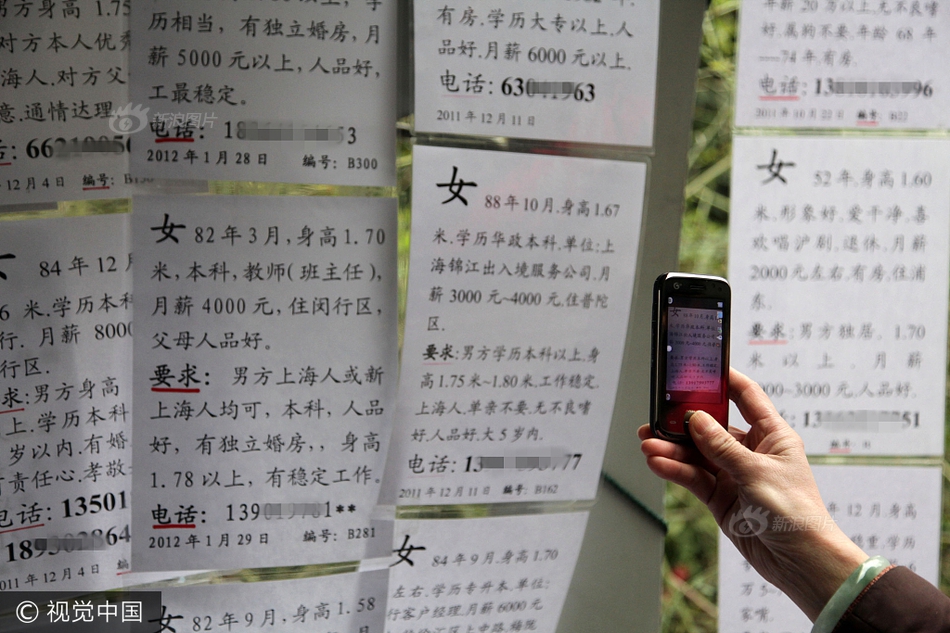 男方身高 1.75
对方本人优秀
海人.对方父
意.通情达理
12月4日 编号:
84年12月
米.学历本科
行. 月薪 8000
行区.
要求:男方身高
上.学历本科
岁以内.有婚
有责任心.孝敬
电话:13501
2011年12月4日
历相当，有独立婚房，月
薪 5000 元以上，人品好，
工最稳定。
电话: 18 3
2012年1月28日 编号: B300
女 82年3月,身高1.70
米,本科,教师(班主任),
月薪 4000 元,住闵行区,
父母人品好。
要求: 男方上海人或新
上海人均可, 本科, 人品
好, 有独立婚房,, 身高
1.78 以上, 有稳定工作。
电话: 139 1**
2012年1月29日 编号: B281
女 82年9月,身高1.58
有房.学历大专以上,人
品好.月薪 6000元以上.
电话: 630 63
2011年12月11日
女 88年10月.身高1.67
米.学历华政本科.单位:上
海锦江出入境服务公司.月
薪 3000元~4000元.住普陀
区.
要求:男方学历本科以上.身
高1.75米~1.80米.工作稳定.
上海人.单亲不要.无不良嗜
好.人品好.大5岁内.
电话: 13 77
2011年12月11日 编号: B162
女 84年9月.身高1.70
左右.学历专升本.单位:
行客户经理.月薪6000元
薪20万以上,无不良嗜
好.属狗不要.年龄 68年
—74年有房.
电话: 13 96
2011年10月22日
女 52年.身高1.60
米,形象好,爱干净,喜
欢唱沪剧,退休,月薪
2000元左右,有房,住浦
东.
要求:男方独居, 1.70
米以上, 月薪
~3000元,人品好.
51
年12月 身高
新浪图片
新浪图片
© 视觉中国